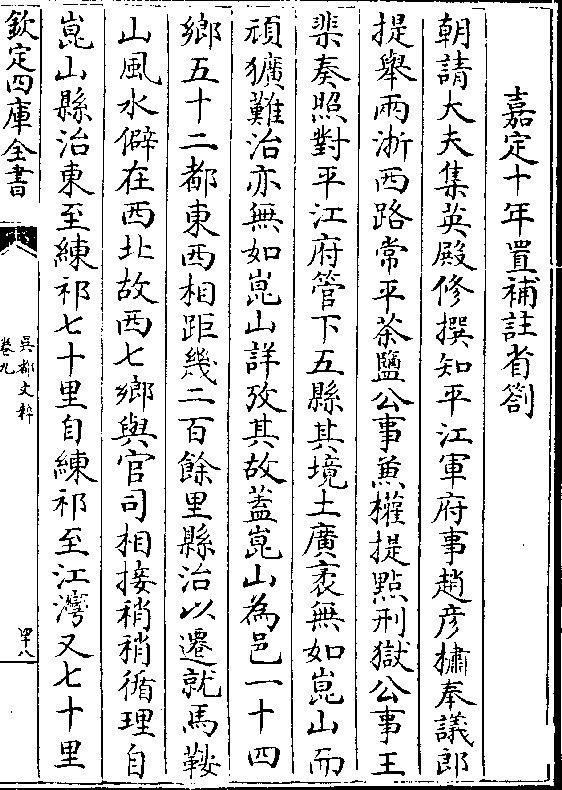 嘉定十年置補註省劄
朝請大夫集英殿修撰知平江軍府事趙彥橚奉議郎
提舉兩浙西路常平茶鹽公事兼權提點刑獄公事王
棐奏照對平江府管下五縣其境土廣袤無如崑山而
頑獷難治亦無如崑山詳攷其故蓋崑山為邑一十四
鄉五十二都東西相距幾二百餘里縣治以遷就馬鞍
山風水僻在西北故西七鄉與官司相接稍稍循理自
崑山縣治東至練祁七十里自練祁至江灣又七十里
欽定四庫全書
吳都文粹
卷九
四十八